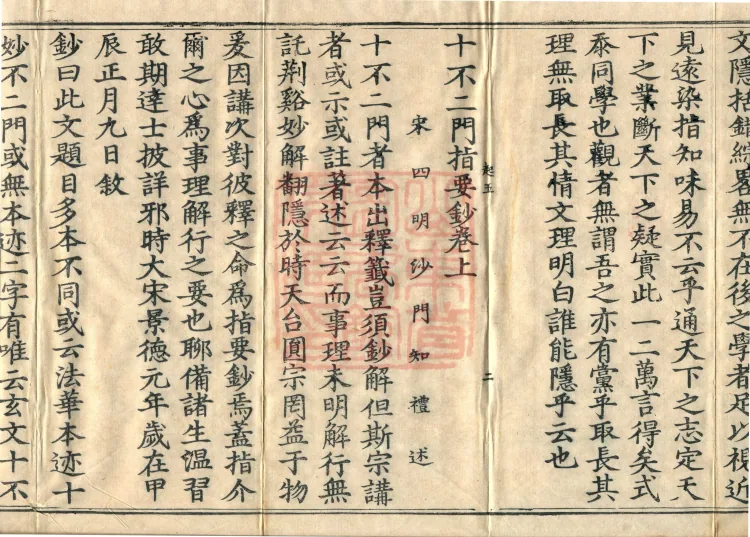 文隱括錯綜畧無不在後之學者足以視近
見遠染指知味易不云乎通天下之志定天
下之業斷天下之疑實此一二萬言得矣式
忝同學也觀者無謂吾之亦有黨乎取長其
理無取長其情文理明白誰能隱乎云也
起五
二
十不二門指要鈔卷上
宋四明沙門知禮述
十不二門者本出釋籤豈須鈔解但斯宗講
者或示或註著述云云而事理未明解行無
託荆谿妙解翻隱於時天台圓宗罔益于物
爰因講次對彼釋之命爲指要鈔焉蓋指介
爾之心爲事理解行之要也聊備諸生溫習
敢期達士披詳邪時大宋景德元年歲在甲
辰正月九日敘
鈔曰此文題目多本不同或云法華本迹十
妙不二門或無本迹二字有唯云玄文十不